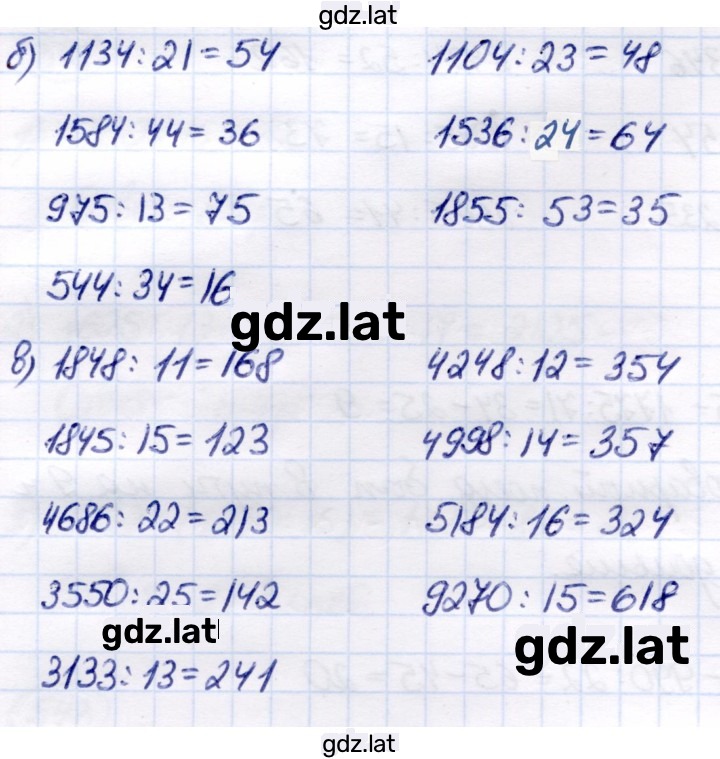 gdz.lat
б) 1134 : 21 = 54 1104 : 23 = 48
1584 : 44 = 36 1536 : 24 = 64
975 : 13 = 75 1855 : 53 = 35
544 : 34 = 16
gdz.lat
в) 1848 : 11 = 168 4248 : 12 = 354
1845 : 15 = 123 4998 : 14 = 357
4686 : 22 = 213 5184 : 16 = 324
3550 : 25 = 142 9270 : 15 = 618
gdz.lat gdz.lat
3133 : 13 = 241
gdz.lat